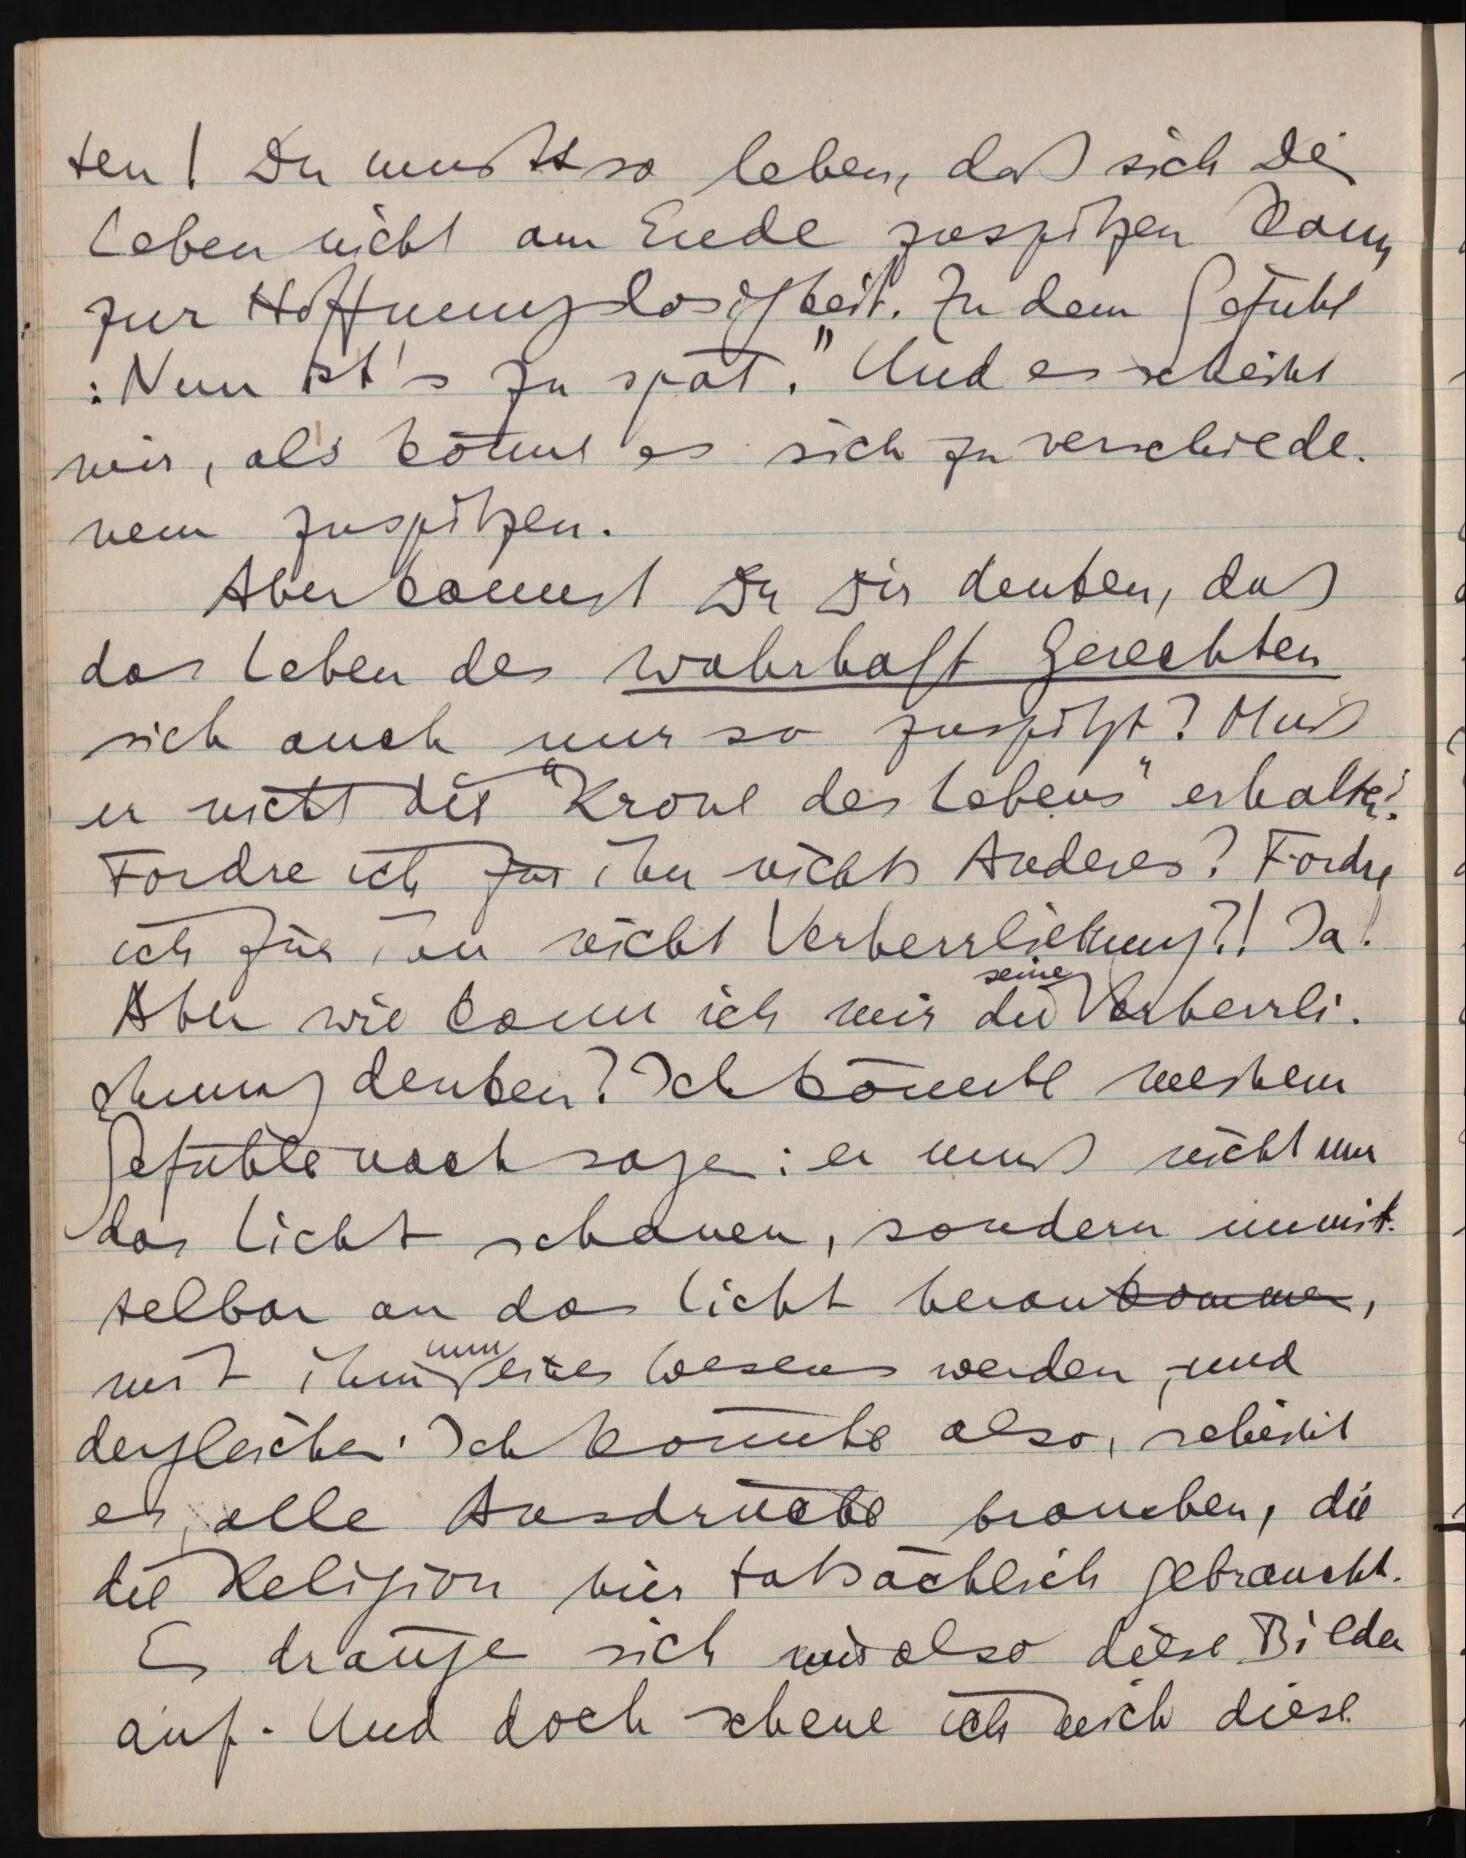 ten! Du mußt so leben, daß sich Dein
Leben nicht am Ende zuspitzen kann
zur Hoffnungslosigkeit. Zu dem Gefühl
: Nun ist's zu spät." Und es scheint
mir, als könne es sich zu verschiede-
nem zuspitzen.
Aber kannst Du Dir denken, daß
das Leben des wahrhaft Gerechten
sich auch nur so zuspitzt? Muß
er nicht die "Krone des Lebens" erhalten?
Fordre ich für ihn nichts Anderes? Fordre
ich für ihn nicht Verherrlichung?! Ja!
Aber wie kann ich mir die seine Verherrli-
chung denken? Ich könnte meinem
Gefühle nach sagen: er muß nicht nur
das Licht schauen, sondern unmit-
telbar an das Licht herankommen,
mit ihm nun eines Wesens werden, und
dergleichen. Ich könnte also, scheint
es, alle Ausdrücke brauchen, die
die Religion hier tatsächlich gebraucht.
Es dränge sich mir also diese Bilder
auf. Und doch scheue ich mich diese